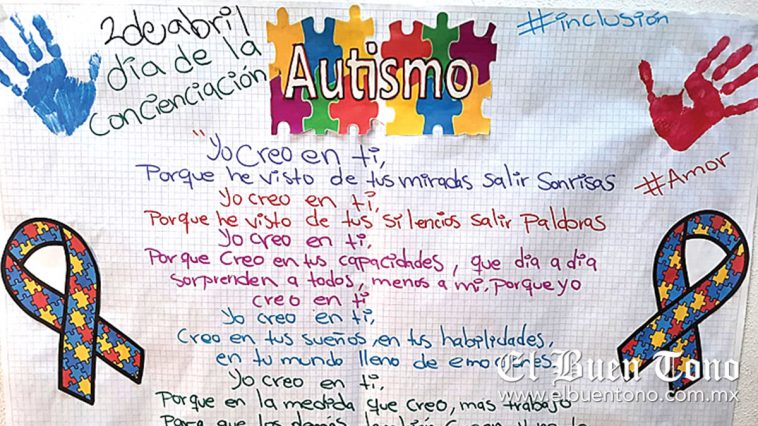 2 de abril
día de la
Concienciación
Autismo
#inclusión
#Amor
"Yo Creo en ti,
Porque he visto de tus miradas salir Sonrisas
Yo creo en ti,
Porque he visto de tus silencios salir Palabras
Yo creo en ti,
Porque Creo en tus capacidades, que dia a dia
sorprenden a todos, menos a mi, Porque yo
creo en ti
Yo creo en ti,
Creo en tus sueños, en tus habilidades,
en tu mundo lleno de emociones
Yo creo en ti,
Porque en la medida que creo, mas trabajo
Para que los demás también
El Buen Tono
www.elbuentono.com.mx